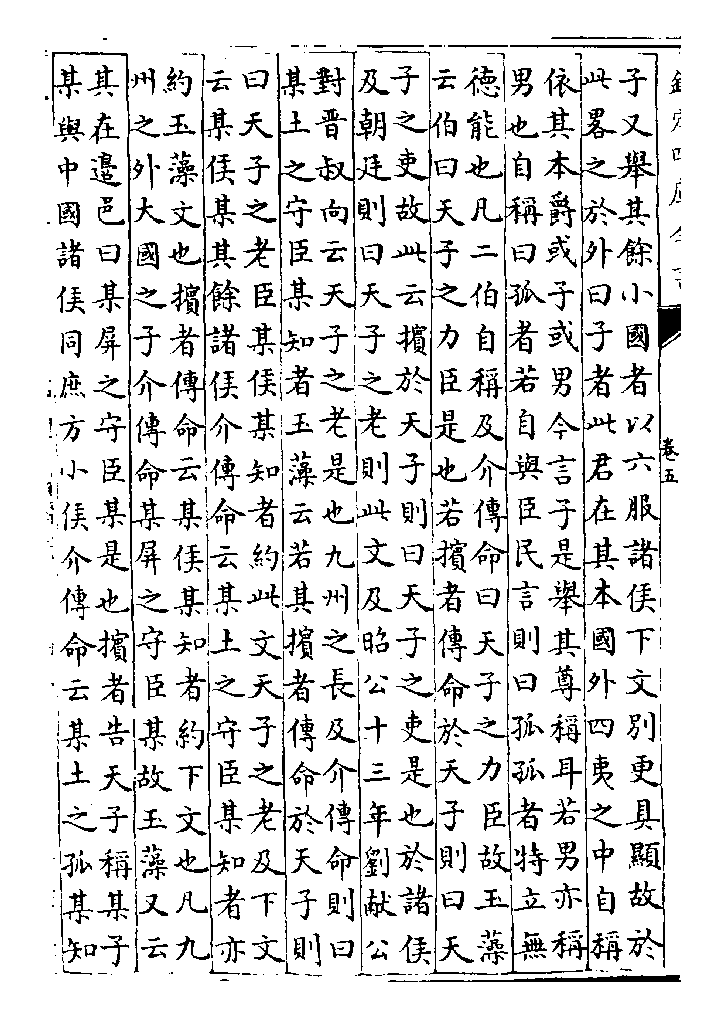 欽定四庫全書
卷五
子又舉其餘小國者以六服諸侯下文別更具顯故於
此畧之於外曰子者此君在其本國外四夷之中自稱
依其本爵或子或男今言子是舉其尊稱耳若男亦稱
男也自稱曰孤者若自與臣民言則曰孤孤者特立無
徳能也凡二伯自稱及介傳命曰天子之力臣故玉藻
云伯曰天子之力臣是也若擯者傳命於天子則曰天
子之吏故此云擯於天子則曰天子之吏是也於諸侯
及朝廷則曰天子之老則此文及昭公十三年劉献公
對晉叔向云天子之老是也九州之長及介傳命則曰
某土之守臣某知者玉藻云若其擯者傳命於天子則
曰天子之老臣某侯某知者約此文天子之老及下文
云某侯某其餘諸侯介傳命云某土之守臣某知者亦
約玉藻文也擯者傳命云某侯某知者約下文也凡九
州之外大國之子介傳命某屏之守臣某故玉藻又云
其在邉邑曰某屏之守臣某是也擯者告天子稱某子
某與中國諸侯同庶方小侯介傳命云某土之孤某知